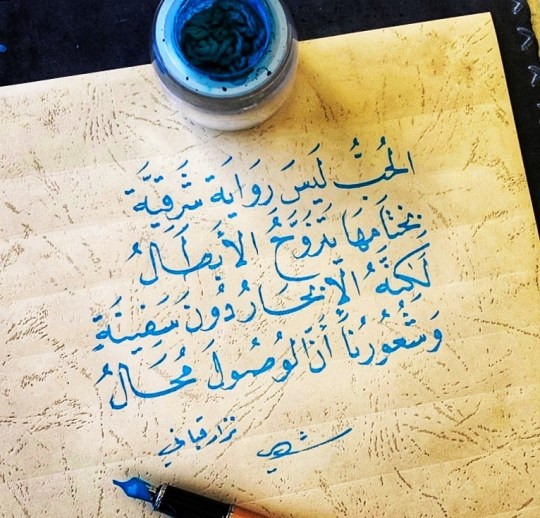 الحُبُّ لَيْسَ رِوَايَة شَرقِيَّة
بِخِتَامِهَا يَتَزَوَّجُ الأَبطَالُ
لَكِنَّهُ الإِبحَارُ دُونَ سَفِينَةٍ
وَشُعُورُنَا أَنَّ الوُصُولَ مُحَالُ
نزار قباني